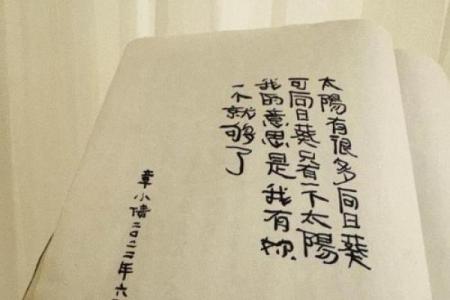 太陽有很多向日葵
可向日葵只有一个太陽
我的意思是我有妳
一个就够了
章小倩二〇二二年六